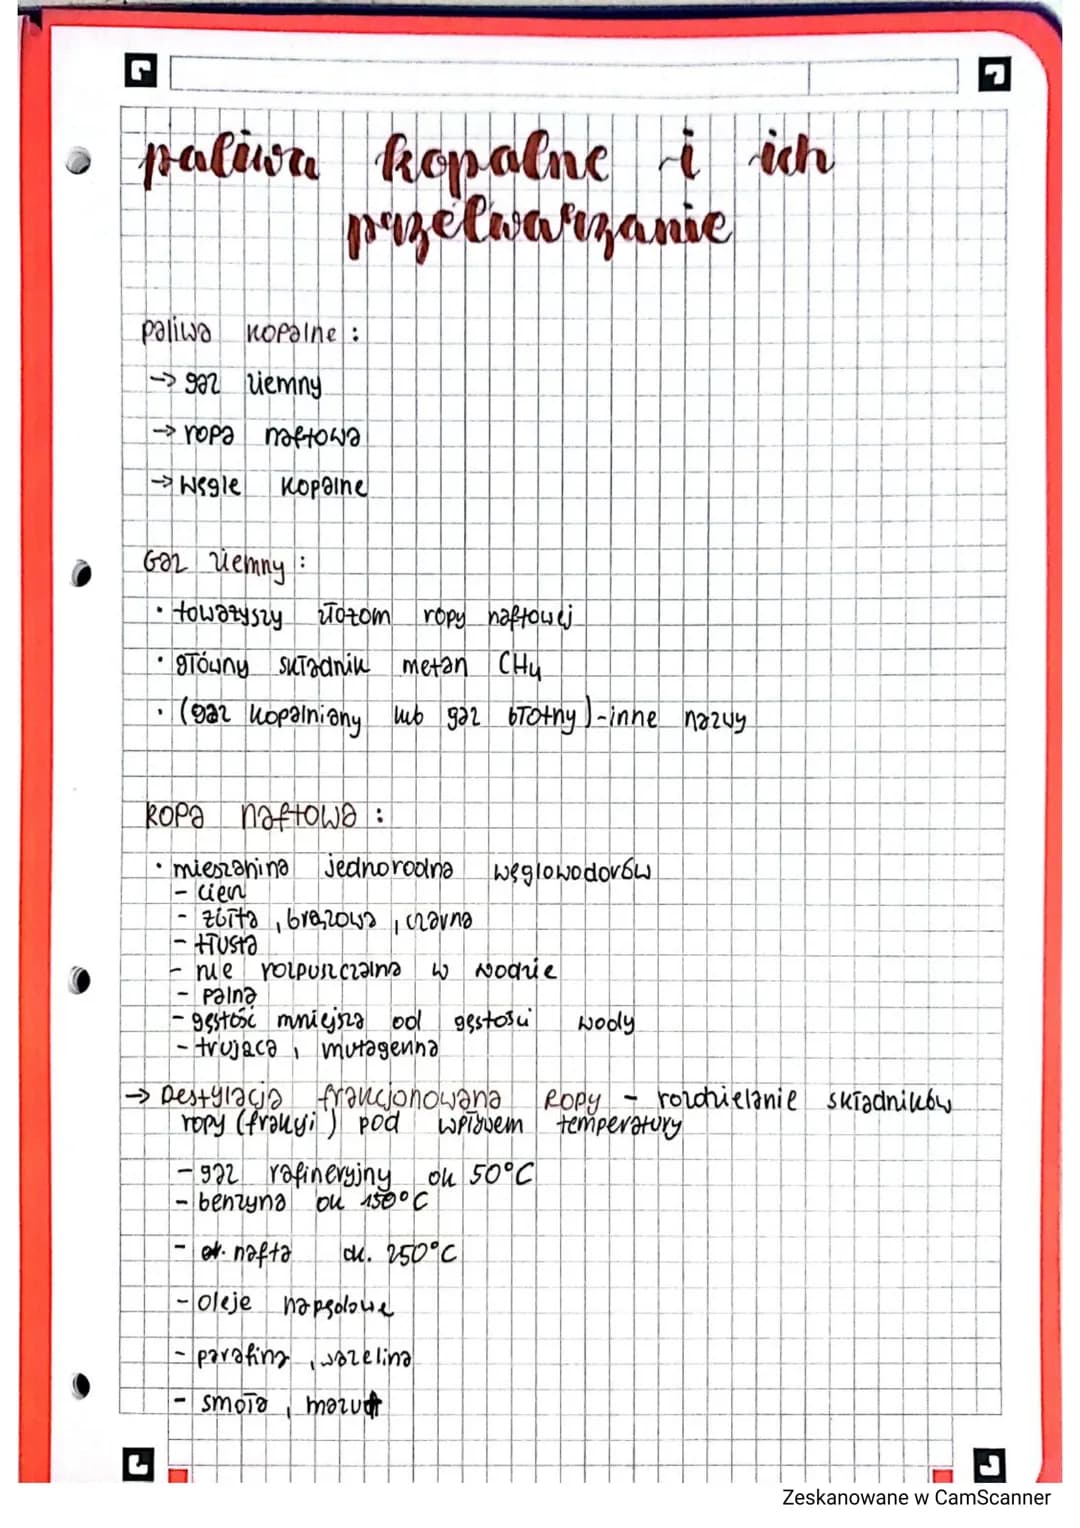 paliwa kopalne i ich
przetwarzanie
paliwa kopalne :
→ gaz ziemny
→ ropa naftowa
→ węgle kopalne
Gaz ziemny :
• towarzyszy złożom ropy naftowej
• główny składnik metan CH4
• (gaz kopalniany lub gaz błotny) - inne nazwy
Ropa naftowa :
• mieszanina jednorodna węglowodorów
- ciecz
- żółta, brązowa, czarna
- tłusta
- nie rozpuszczalna w wodzie
- palna
- gęstość mniejsza od gęstości wody
- trująca, mutagenna
→ Destylacja frakcjonowana Ropy - rozdzielanie składników
ropy (frakcji) pod wpływem temperatury
- gaz rafineryjny ok 50°C
- benzyna ok 150°C
- nafta ok. 250°C
- oleje napędowe
- parafina, wazelina
- smoła, mazut
Zeskanowane w CamScanner